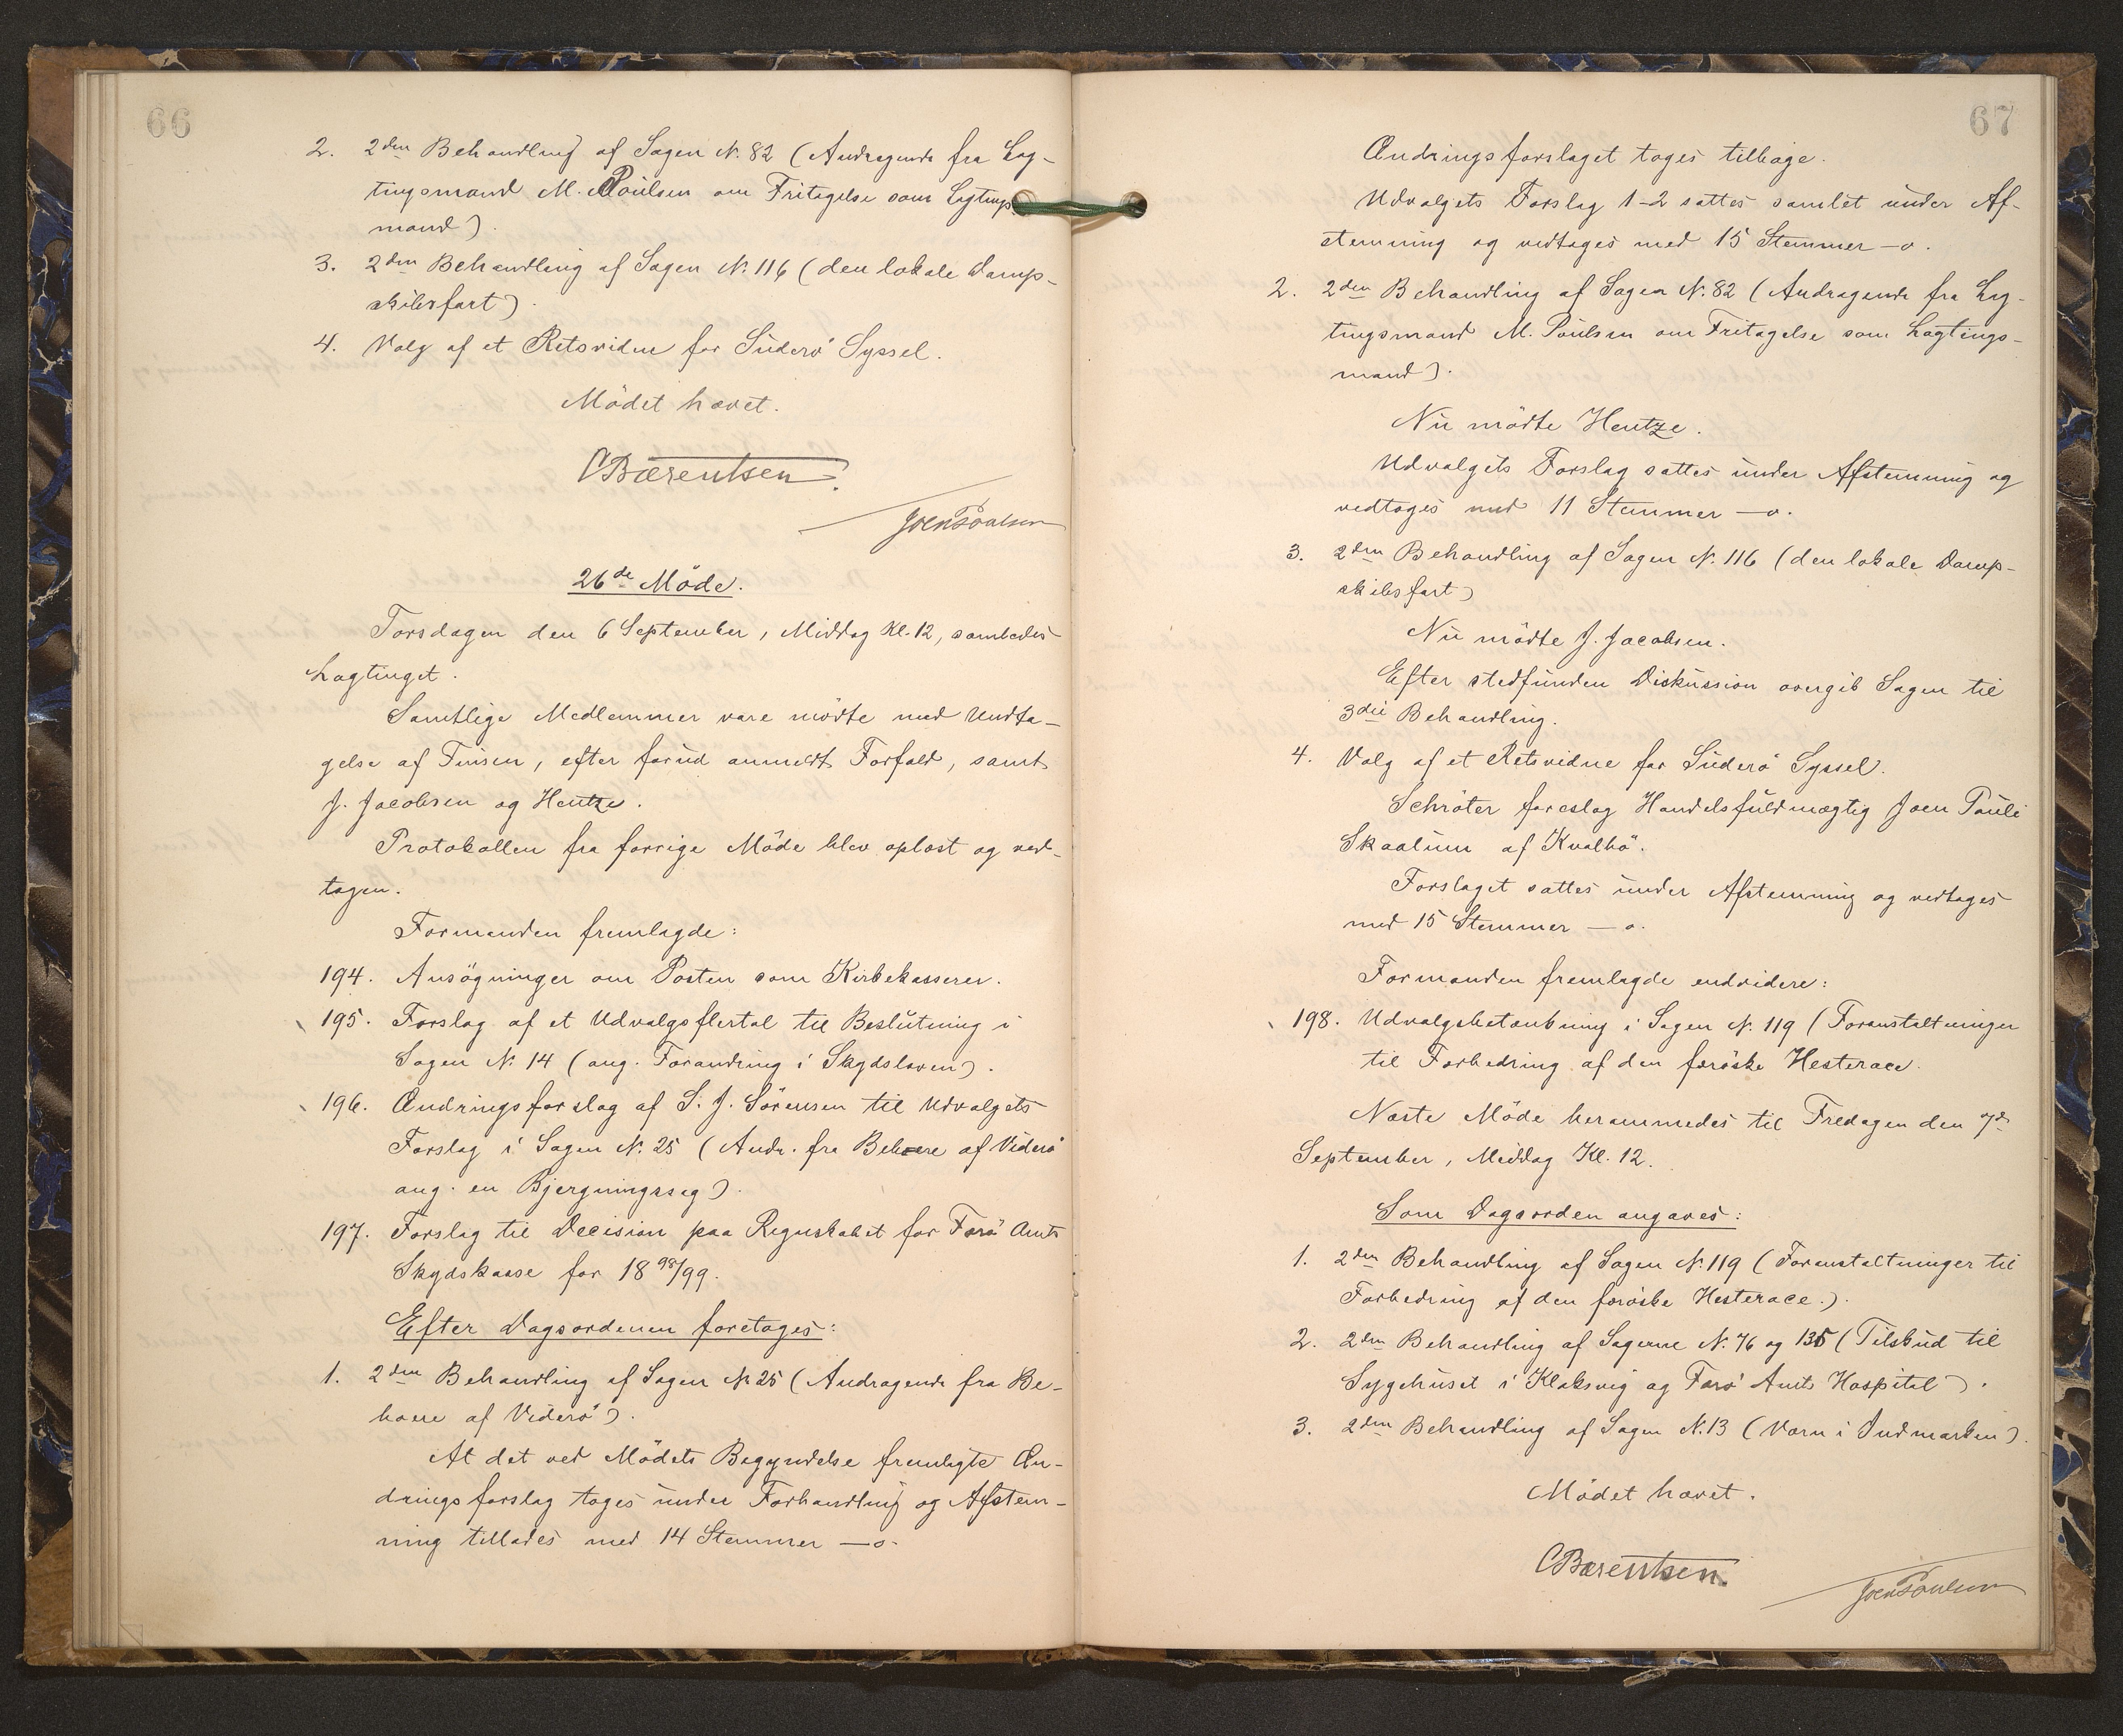 66
2. 2den Behandling af Sagen N. 82 (Andragende fra Lag-
tingsmand M. Poulsen om Fritagelse som Lagtings-
mand).
3. 2den Behandling af Sagen N. 116 (den lokale Damp-
skibsfart).
4. Valg af et Retsvidne for Suderö Syssel.
Mödet hævet.
CBærentsen.
Joen Poulsen
26de Möde.
Torsdagen den 6 September, Middag Kl. 12, samledes
Lagtinget.
Samtlige Medlemmer vare mödte med Undta-
gelse af Finsen, efter forud anmeldt Forfald, samt
J. Jacobsen og Hentze.
Protokollen fra forrige Möde blev oplæst og ved-
tagen.
Formanden fremlagde:
194. Ansögninger om Posten som Kirkekasserer.
195. Forslag af et Udvalgsflertal til Beslutning i
Sagen N. 14 (ang. Forandring i Skydsloven).
196. Ændringsforslag af S. J. Sörensen til Udvalgets
Forslag i Sagen N. 25 (Andr. fra Beboere af Viderö
ang. en Bjergningssag).
197. Forslag til Decision paa Regnskabet for Færö Amts
Skydskasse for 1898/99.
Efter Dagsordenen foretoges:
1. 2den Behandling af Sagen N. 25 (Andragende fra Be-
boere af Viderö).
At det ved Mödets Begyndelse fremlagte Æn-
dringsforslag toges under Forhandling og Afstem-
ning tillodes med 14 Stemmer — o.
67
Ændringsforslaget toges tilbage.
Udvalgets Forslag 1-2 sattes samlet under Af-
stemning og vedtoges med 15 Stemmer — o.
2. 2den Behandling af Sagen N. 82 (Andragende fra Lag-
tingsmand M. Poulsen om Fritagelse som Lagtings-
mand).
Nu mödte Hentze.
Udvalgets Forslag sattes under Afstemning og
vedtoges med 11 Stemmer — o.
3. 2den Behandling af Sagen N. 116 (den lokale Damp-
skibsfart)
Nu mödte J. Jacobsen.
Efter stedfunden Diskussion overgik Sagen til
3die Behandling.
4. Valg af et Retsvidne for Suderö Syssel.
Schröter foreslog Handelsfuldmægtig Joen Pauli
Skaalum af Kvalbö.
Forslaget sattes under Afstemning og vedtoges
med 15 Stemmer — o.
Formanden fremlagde endvidere:
198. Udvalgsbetænkning i Sagen N. 119 (Foranstaltninger
til Forbedring af den færöske Hesterace.
Næste Möde berammedes til Fredagen den 7de
September, Middag Kl. 12.
Som Dagsorden angaves:
1. 2den Behandling af Sagen N. 119 (Foranstaltninger til
Forbedring af den færöske Hesterace.).
2. 2den Behandling af Sagerne N. 76 og 135 (Tilskud til
Sygehuset i Klaksvig og Færö Amts Hospital).
3. 2den Behandling af Sagen N. 13 (Værn i Indmarken).
Mödet hævet.
CBærentsen.
Joen Poulsen